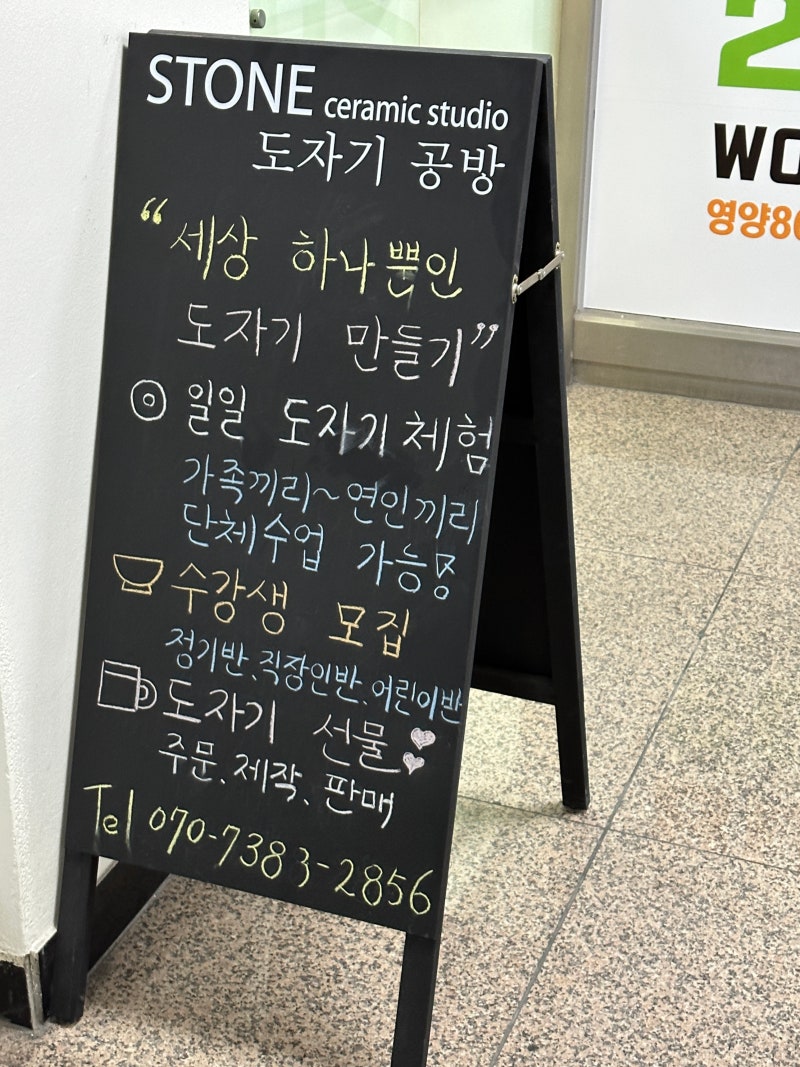 STONE ceramic studio
도자기 공방
“세상 하나뿐인
도자기 만들기”
일일 도자기 체험
가족끼리~연인끼리
단체수업 가능
수강생 모집
정기반, 직장인반, 어린이반
도자기 선물
주문, 제작, 판매
Tel 070-7383-2856
2
WO
영양80